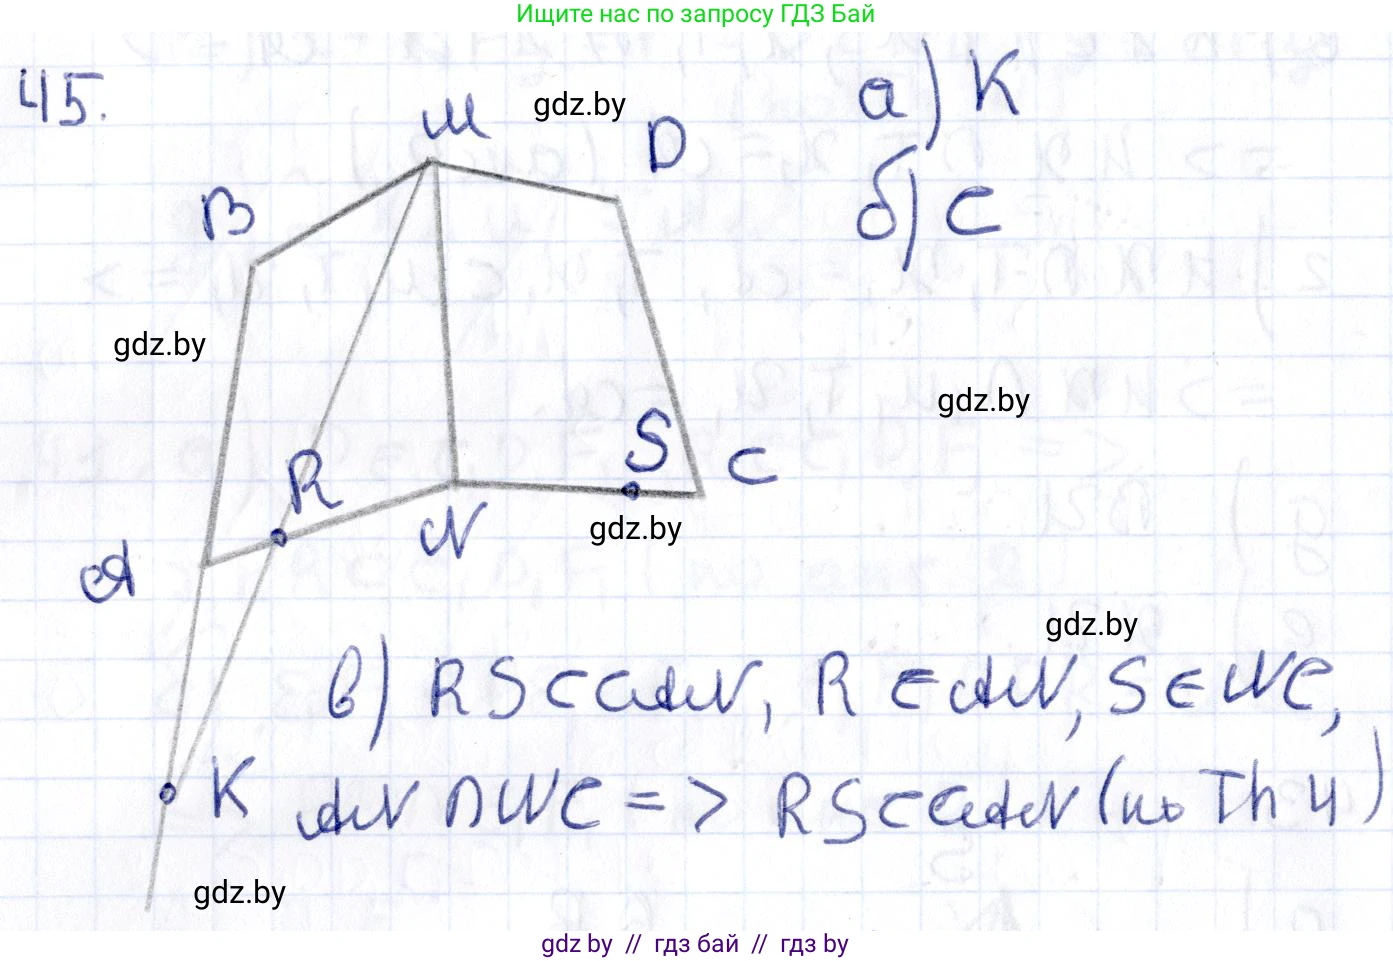 Ищите нас по запросу ГДЗ Бай
45.
M
gdz.by
D
а) K
B
б) C
gdz.by
gdz.by
S
C
R
N
gdz.by
A
gdz.by
в) RS ⊂ CAN, R ∈ AN, S ∈ NC,
K
AN ∩ NC => RS ⊂ CAN (по Th 4)
gdz.by
gdz by // гдз бай // гдз by